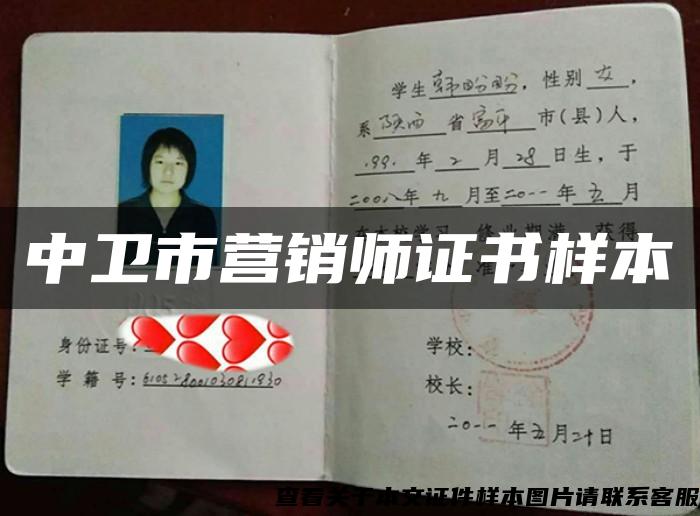 学生韩盼盼，性别女，
系陕西省富平市(县)人，
1991年2月28日生，于
二00八年九月至二0一一年五月
中卫市营销师证书样本
身份证号：
学籍号：610528001030811930
学校：
校长：
二0一一年五月二十日
查看关于本文证件样本图片请联系客服